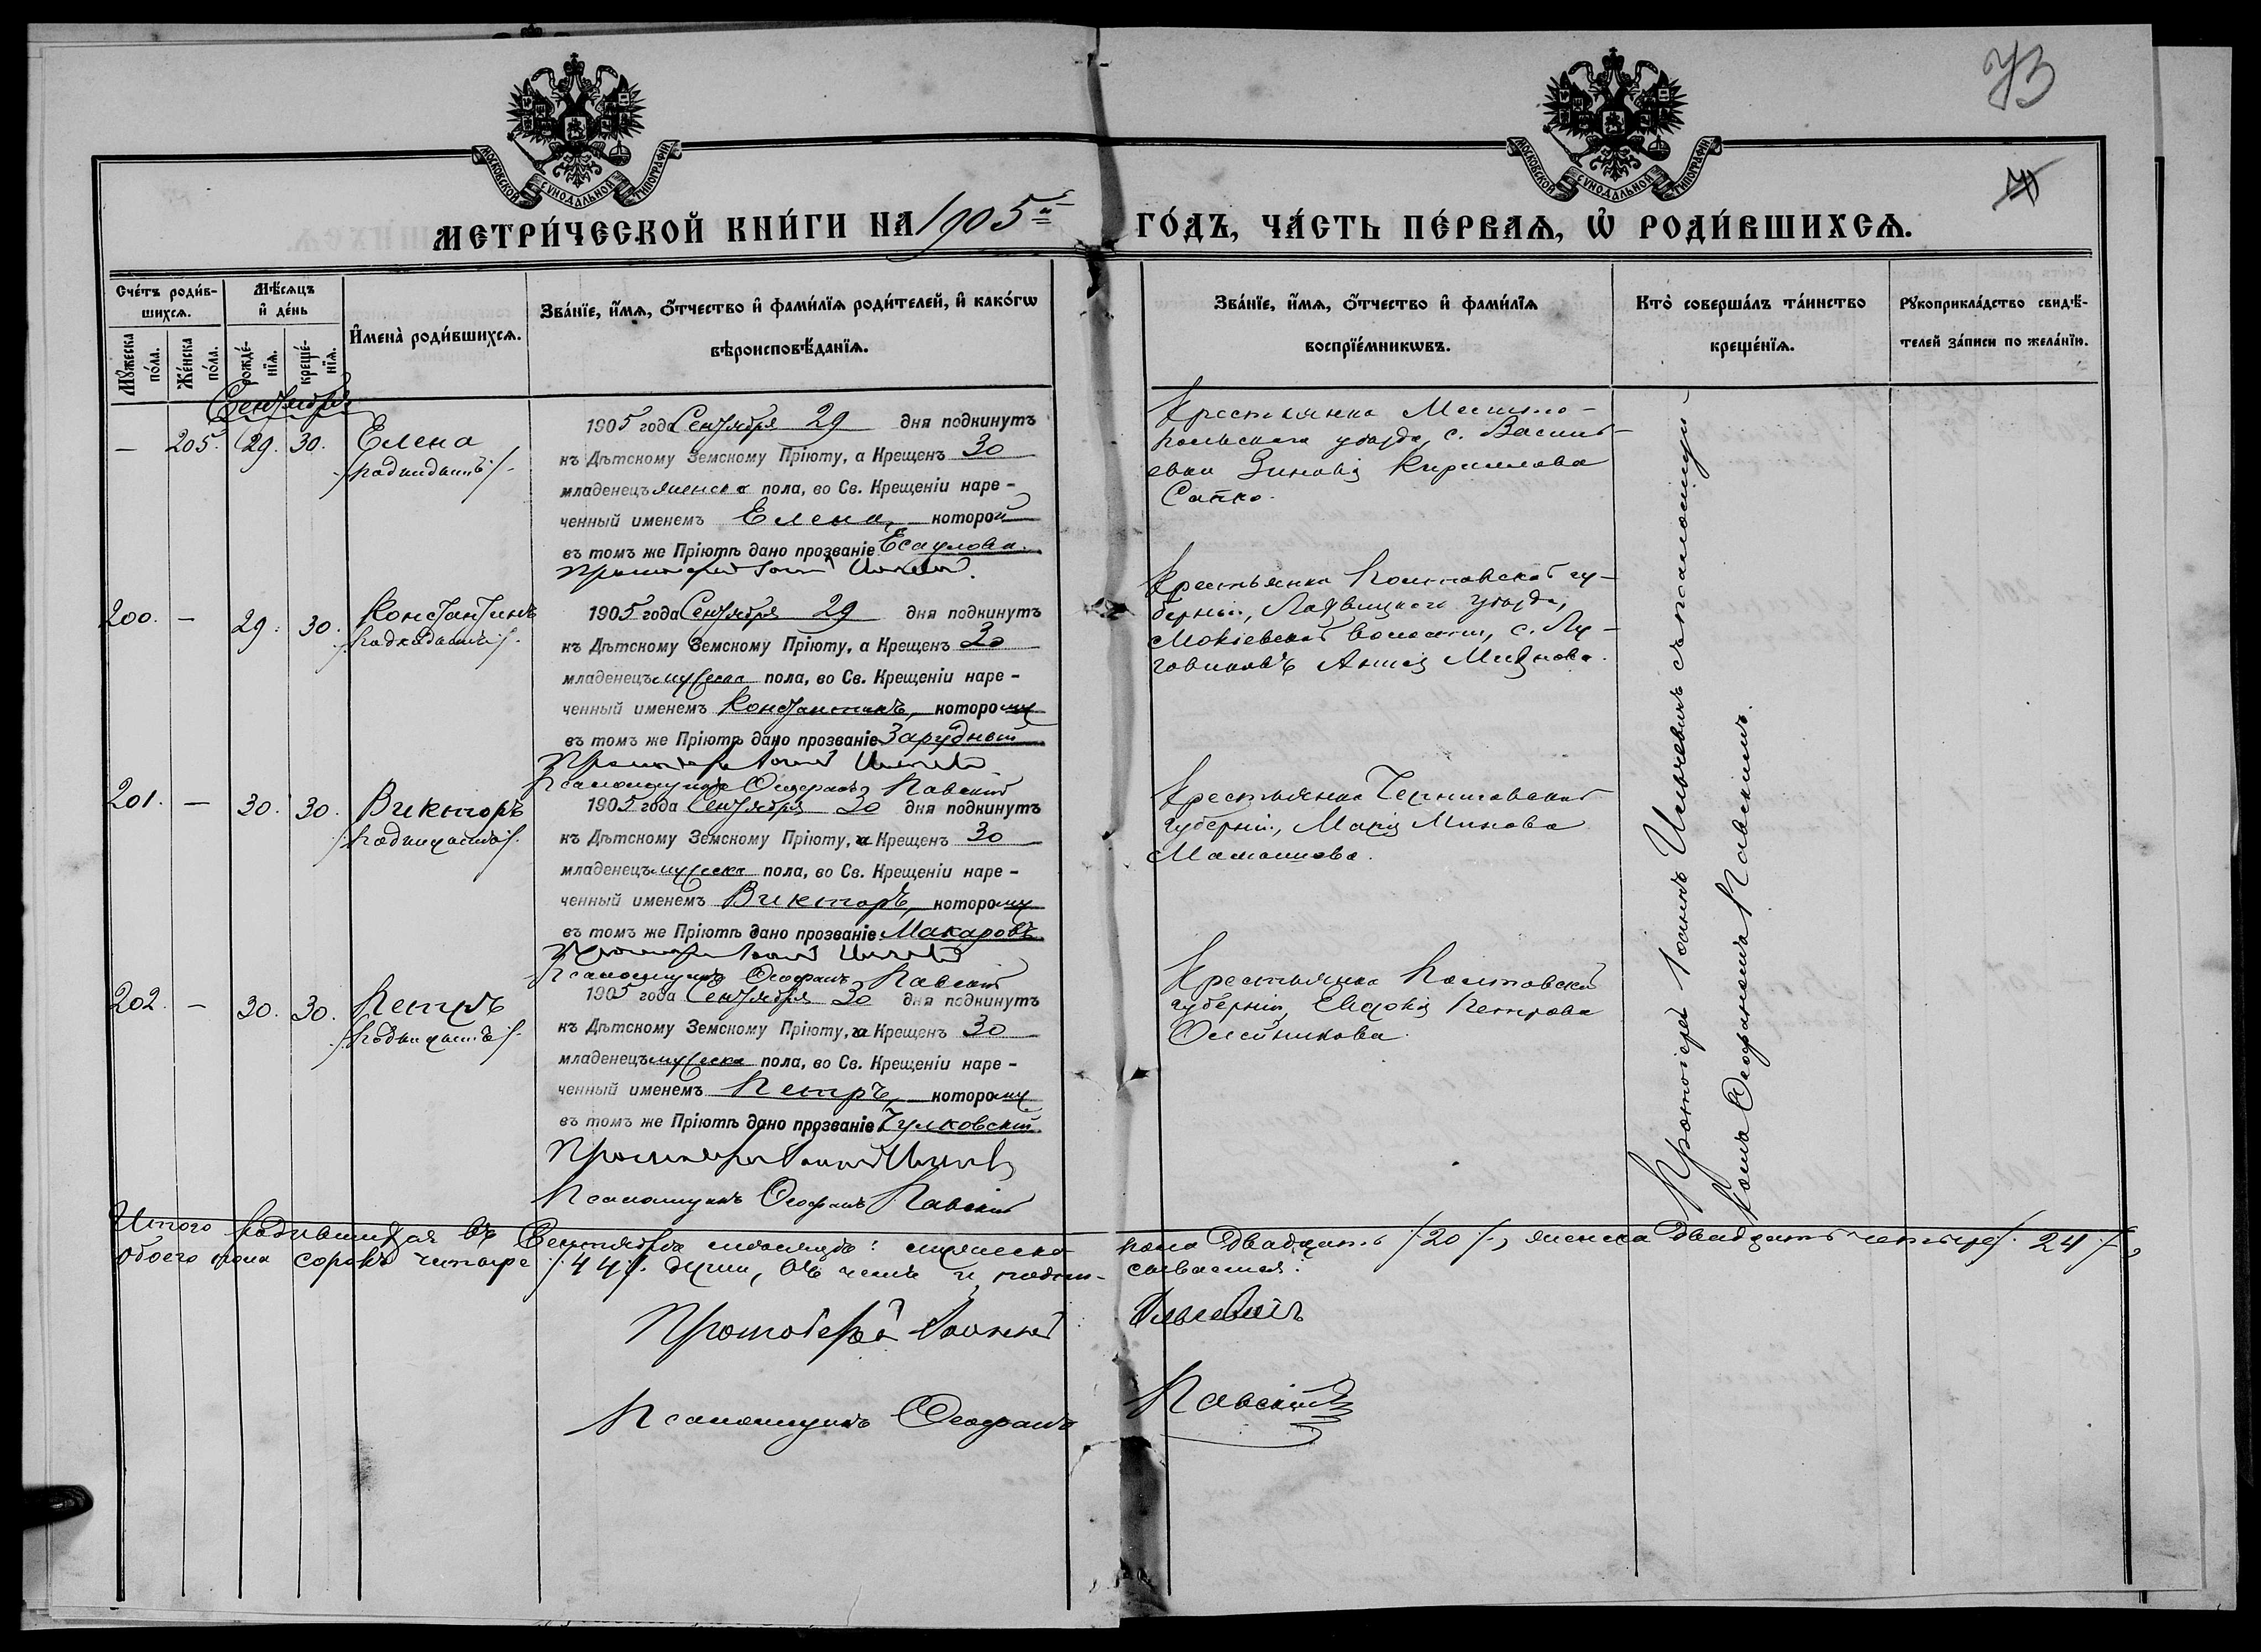 73
МОСКОВСКОЙ СУНОДАЛЬНОЙ ТИПОГРАФІИ
МОСКОВСКОЙ СУНОДАЛЬНОЙ ТИПОГРАФІИ
МЕТРИ́ЧЕСКОЙ КНИ́ГИ НА 1905й ГО́ДЪ, ЧА́СТЬ ПЕ́РВАѦ, Ѡ҆ РОДИ́ВШИХСѦ.
Сче́тъ роди́вшихсѧ.
Мꙋ́жеска по́ла.
Же́нска по́ла.
Мѣ́сѧцъ и҆ де́нь
рожде́нїѧ.
креще́нїѧ.
И҆мена̀ роди́вшихсѧ.
Зва́нїе, и҆́мѧ, ѻ҆́тчество и҆ фами́лїѧ роди́телей, и҆ како́гѡ
вѣроисповѣ́данїѧ.
Зва́нїе, и҆́мѧ, ѻ҆́тчество и҆ фами́лїѧ
воспрїе́мникѡвъ.
Кто̀ соверша́лъ та́инство
креще́нїѧ.
Рꙋкоприкла́дство свидѣ́-
телей за́писи по жела́нїю.
Сентября
— 205. 29. 30. Елена
/подкидышъ/.
1905 года Сентября 29 дня подкинутъ
къ Дѣтскому Земскому Пріюту, а Крещенъ 30
младенецъ женска пола, во Св. Крещеніи наре-
ченный именемъ Елена, которой
въ томъ же Пріютѣ дано прозваніе Есаулова.
Протоіерей Іоаннъ Ильчевичъ
Крестьянка Мелито-
польскаго уѣзда, с. Василь-
евки Зиновія Кириллова
Сапко.
200. — 29. 30. Константинъ
/подкидышъ/.
1905 года Сентября 29 дня подкинутъ
къ Дѣтскому Земскому Пріюту, а Крещенъ 30
младенецъ мужеска пола, во Св. Крещеніи наре-
ченный именемъ Константинъ, которому
въ томъ же Пріютѣ дано прозваніе Зарудный
Протоіерей Іоаннъ Ильчевичъ
Псаломщикъ Ѳеофанъ Павскій
Крестьянка Полтавской гу-
берніи, Лохвицкаго уѣзда,
Мокіевской волости, с. Лу-
говиковъ Анна
201. — 30. 30. Викторъ
/подкидышъ/.
1905 года Сентября 30 дня подкинутъ
къ Дѣтскому Земскому Пріюту, а Крещенъ 30
младенецъ мужеска пола, во Св. Крещеніи наре-
ченный именемъ Викторъ, которому
въ томъ же Пріютѣ дано прозваніе Макаровъ
Протоіерей Іоаннъ Ильчевичъ
Псаломщикъ Ѳеофанъ Павскій
Крестьянка Черниговской
губерніи, Марія Минова
202. — 30. 30. Петръ
/подкидышъ/.
1905 года Сентября 30 дня подкинутъ
къ Дѣтскому Земскому Пріюту, а Крещенъ 30
младенецъ мужеска пола, во Св. Крещеніи наре-
ченный именемъ Петръ, которому
въ томъ же Пріютѣ дано прозваніе Чулковскій.
Протоіерей Іоаннъ Ильчевичъ
Псаломщикъ Ѳеофанъ Павскій
Крестьянка Полтавской
губерніи, Евдокія Петрова
Олейникова.
Протоіерей Іоаннъ Ильчевичъ съ псаломщи-
комъ Ѳеофаномъ Павскимъ.
Итого родившихся въ Сентябрѣ мѣсяцѣ: мужеска пола двадцать /20/, женска двадцать четыре /24/,
обоего пола сорокъ четыре /44/ души, въ чемъ и подпи- сываемся:
Протоіерей Іоаннъ Ильчевичъ
Псаломщикъ Ѳеофанъ Павскій